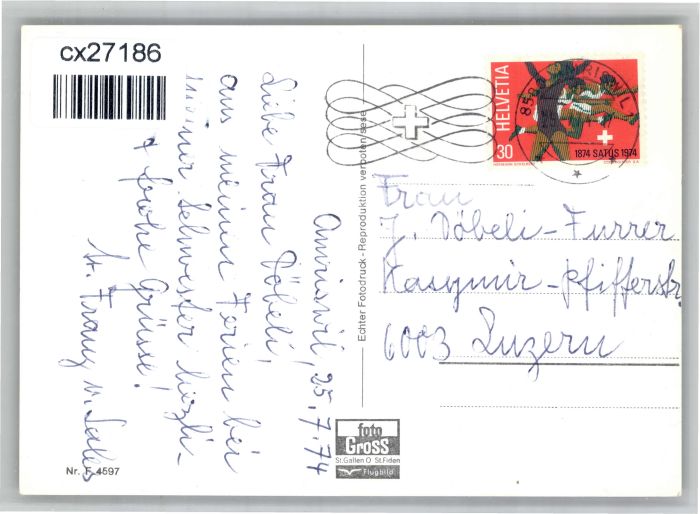 cx27186
Amriswil, 25.7.74
Liebe Frau Döbeli,
aus meinen Ferien bei
meiner Schwester herzli-
+ frohe Grüsse!
Sr. Franz v. Sales
Nr. F 4597
Echter Fotodruck - Reproduktion verboten
foto
Gross
St.Gallen O St.Fiden
Flugbild
HELVETIA
30
1874 SATUS 1974
Frau
J. Döbeli-Furrer
Kasymir-Pfifferstr.
6003 Luzern